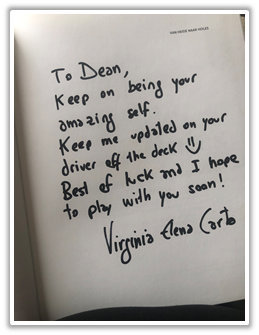 VAN HEIDE NAAR HOLES
To Dean,
Keep on being your
amazing self.
Keep me updated on your
driver off the deck
Best of luck and I hope
to play with you soon!
Virginia Elena Carta